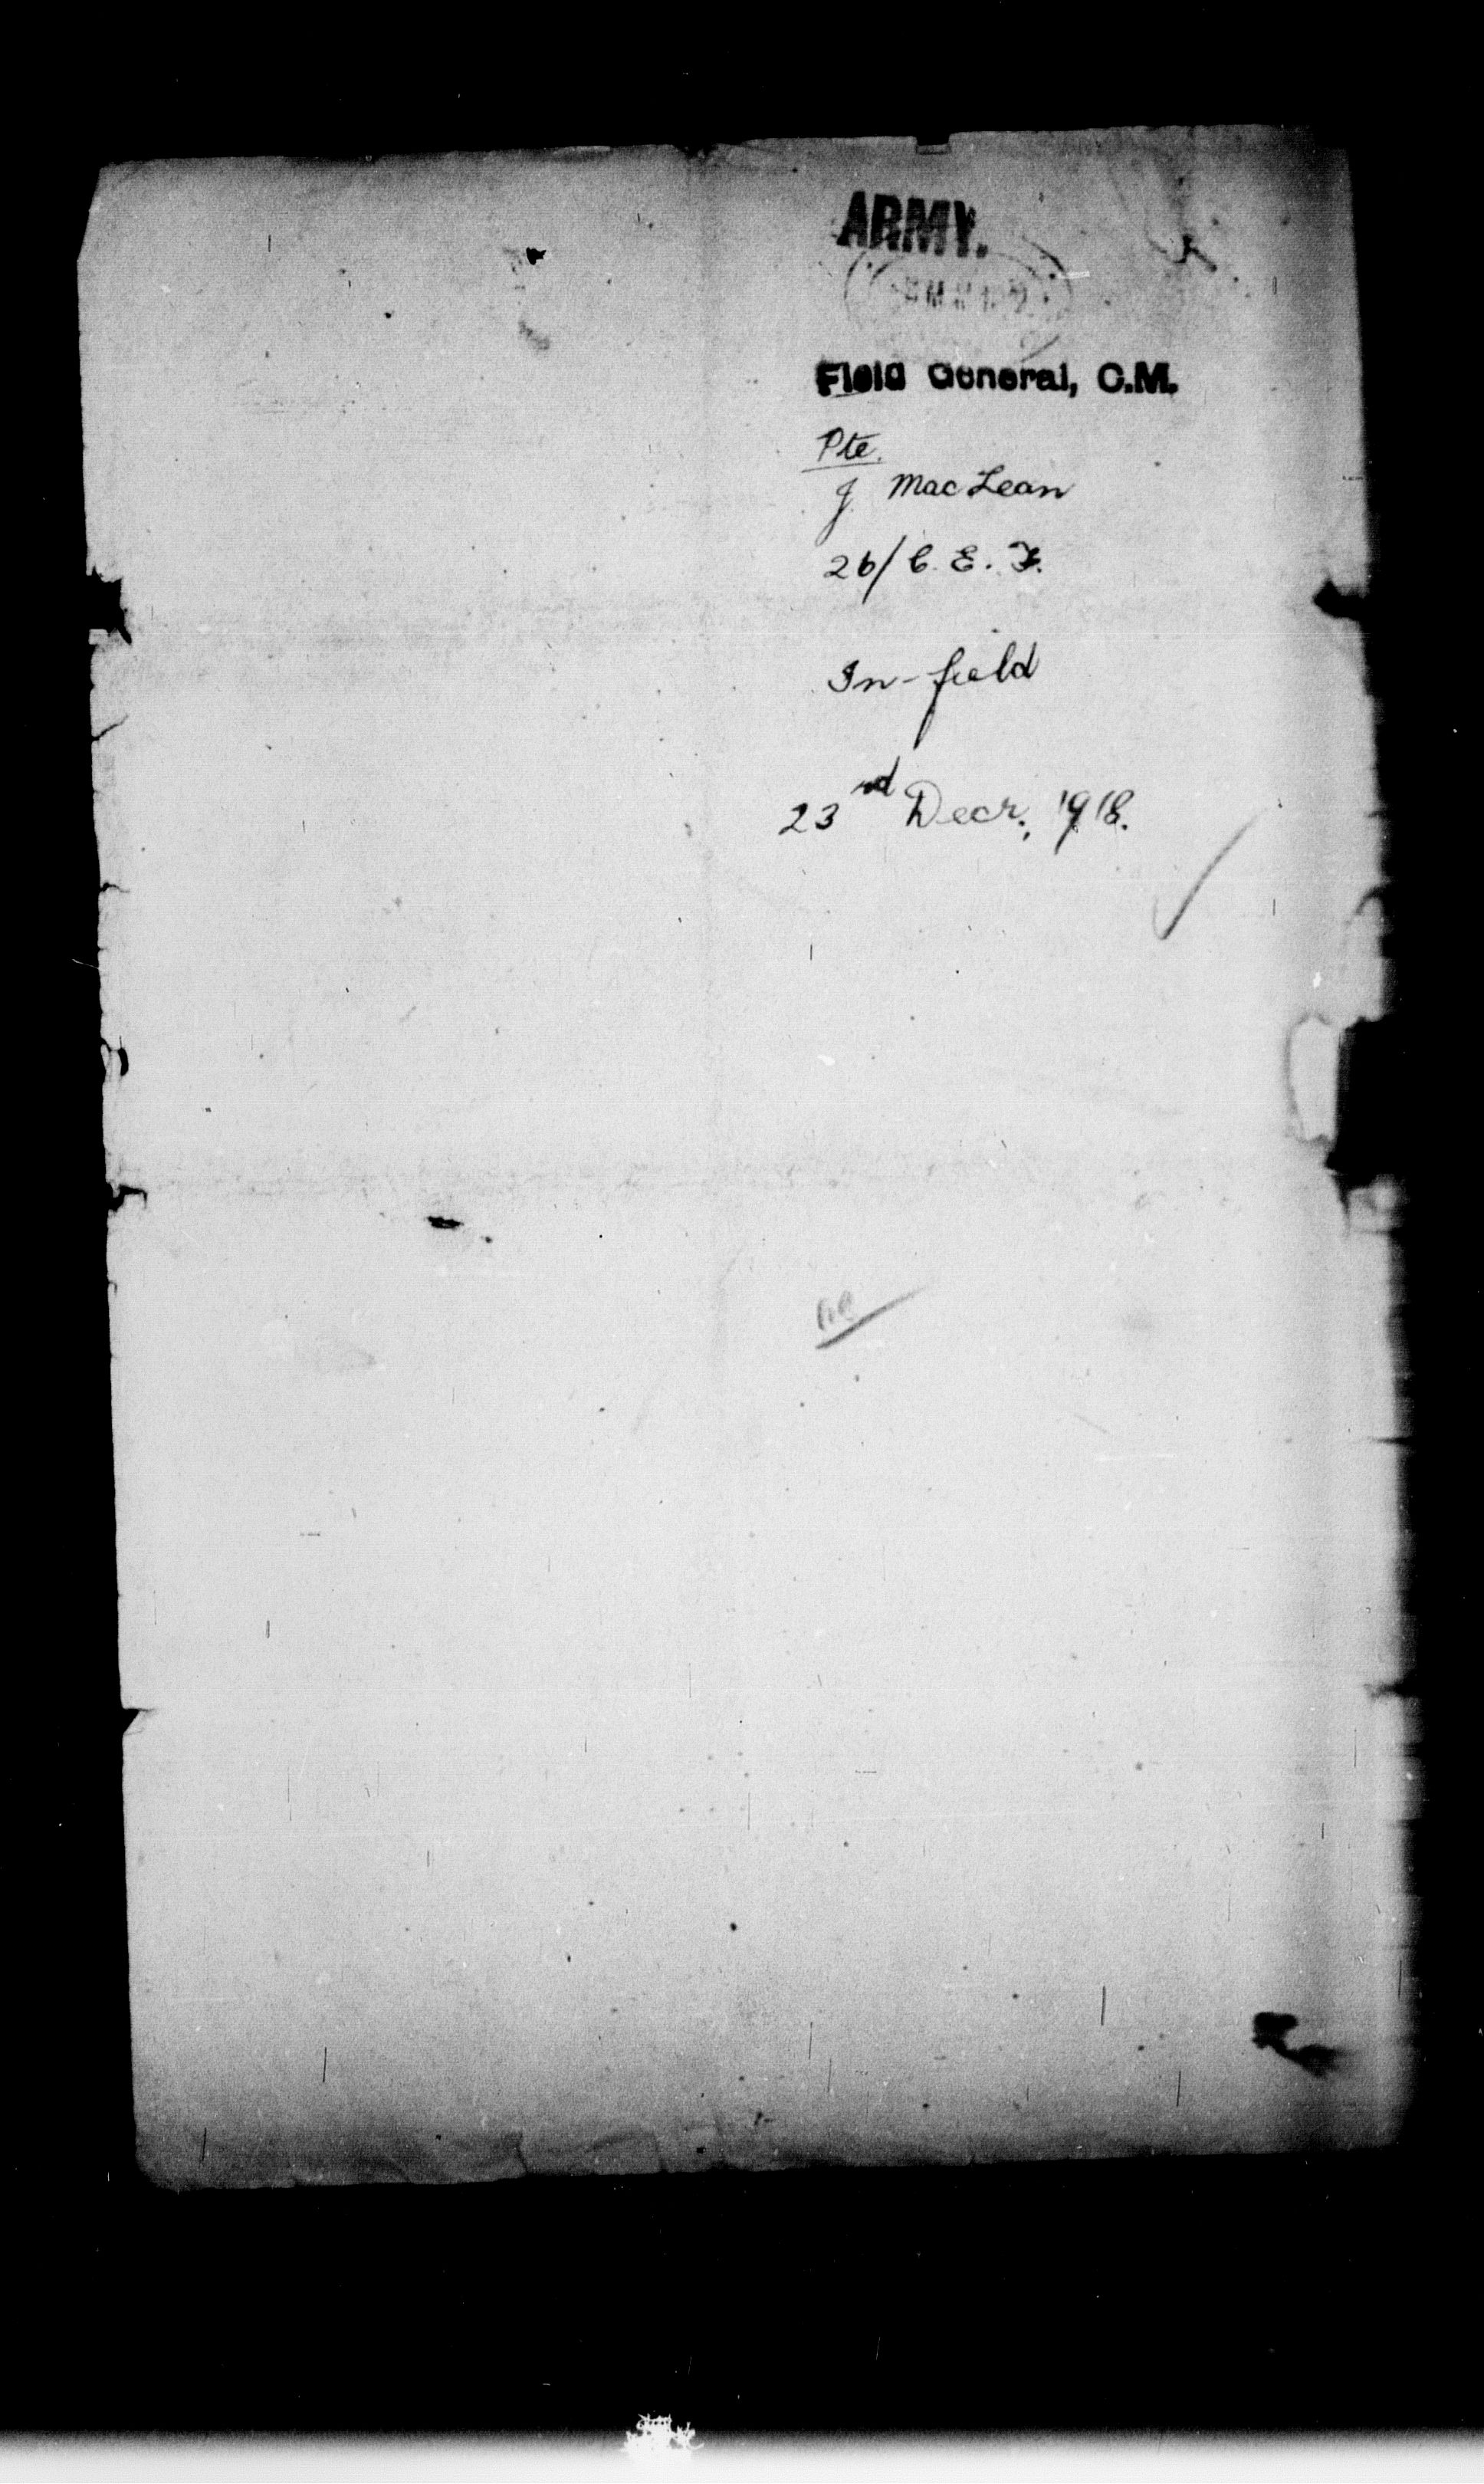 ARMY.
Field General, C.M.
Pte.
J MacLean
26/C. E. F.
In-field
23rd Decr., 1918.